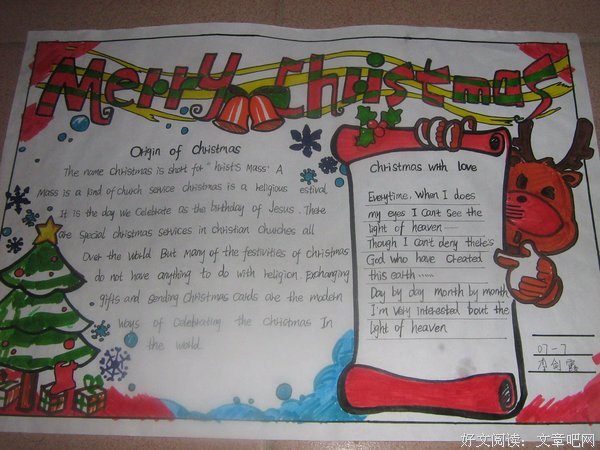 Merry Christmas
Origin of christmas
The name christmas is short for "hrist's Mass". A
Mass is a kind of church service christmas is a religious estival
It is the day we celebrate as the birthday of Jesus. There
are special christmas services in christian churches all
Over the world But many of the festivities of christmas
do not have anything to do with religion. Exchanging
gifts and sending christmas cards are the modern
ways of celebrating the christmas In
the world.
christmas with love
Everytime, When I does
my eyes I Can't See the
light of heaven......
Though I can't deny there's
God who have created
this earth......
Day by day month by month
I'm very interested bout the
light of heaven
07-7
李剑
好文阅读：文章吧网